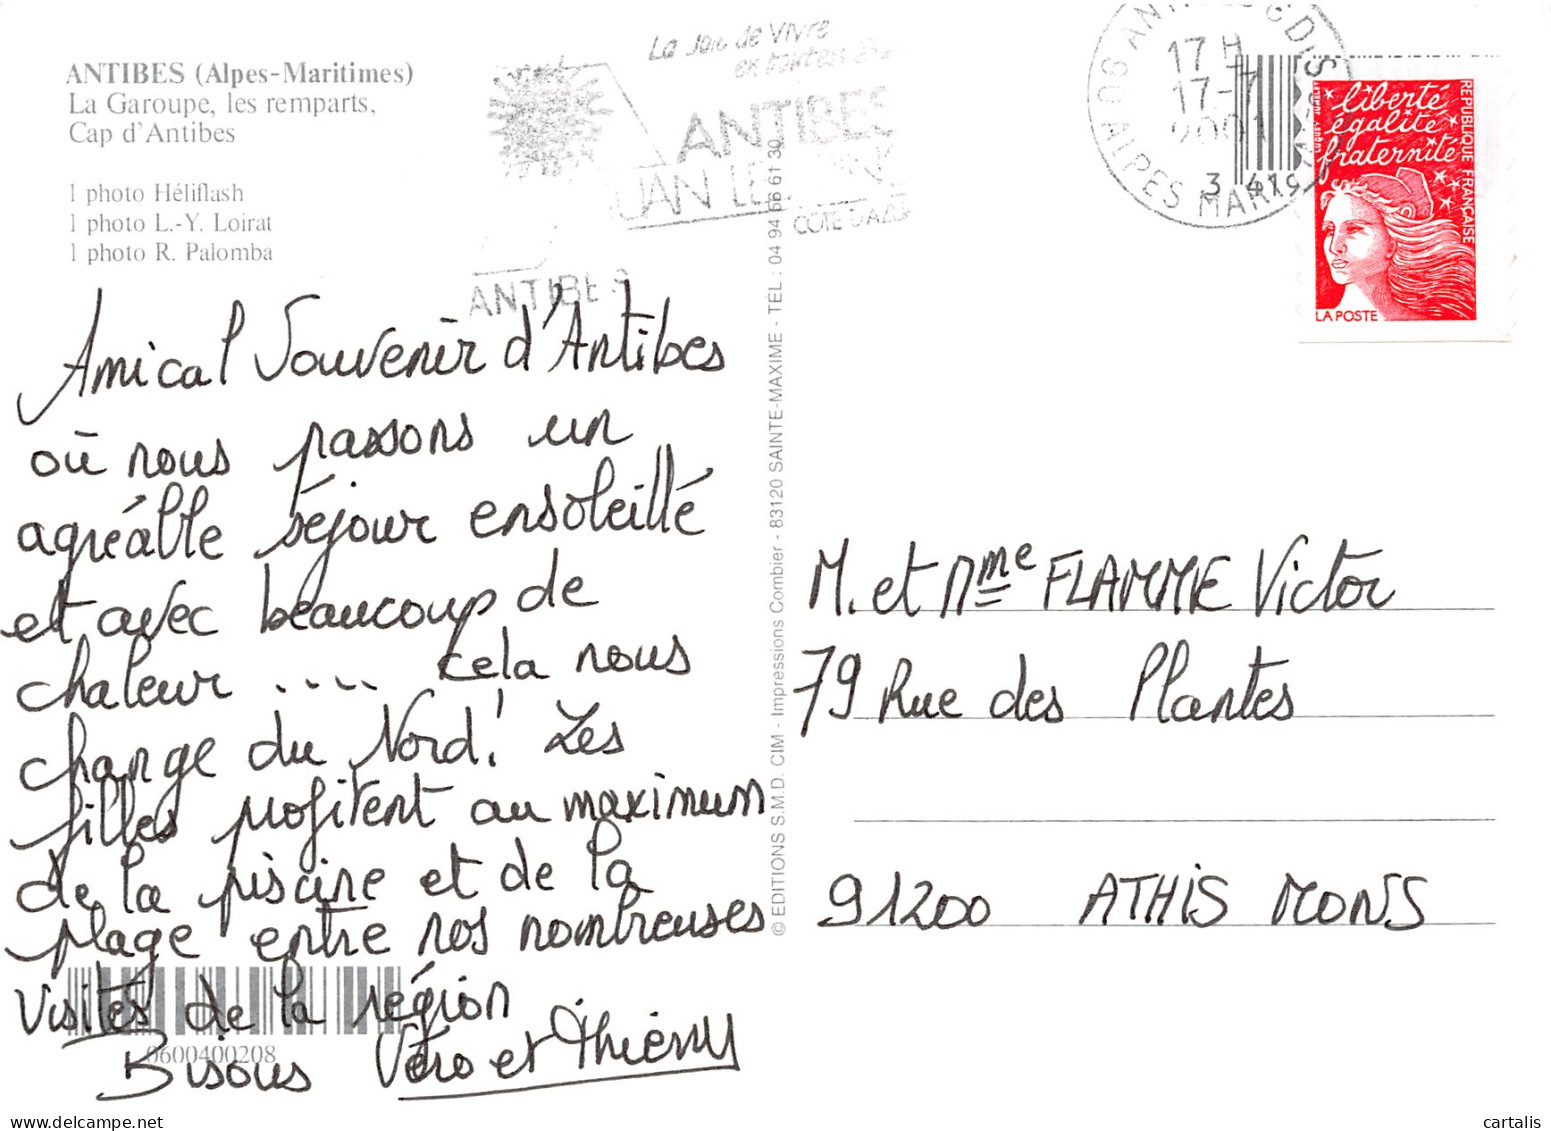 ANTIBES (Alpes-Maritimes)
La Garoupe, les remparts,
Cap d'Antibes
1 photo Héliflash
1 photo L.-Y. Loirat
1 photo R. Palomba
La Joie de Vivre
en toutes
ANTIBES
JUAN LES PINS
COTE D'AZUR
ANTIBES
06 ANTIBES CDIS
17 H
17-7
2001
ALPES MARITIMES
3 419
liberté
égalité
fraternité
REPUBLIQUE FRANÇAISE
LA POSTE
Amical Souvenir d'Antibes
où nous passons un
agréable séjour ensoleillé
et avec beaucoup de
chaleur .... cela nous
change du Nord! Les
filles profitent au maximum
de la piscine et de la
plage entre nos nombreuses
visites de la région
Bisous Véro et Thierry
0600400208
© EDITIONS S.M.D. CIM - Impressions Combier - 83120 SAINTE-MAXIME - TÉL : 04 94 66 61 30
M. et Mme FLAMME Victor
79 Rue des Plantes
91200 ATHIS MONS
cartalis